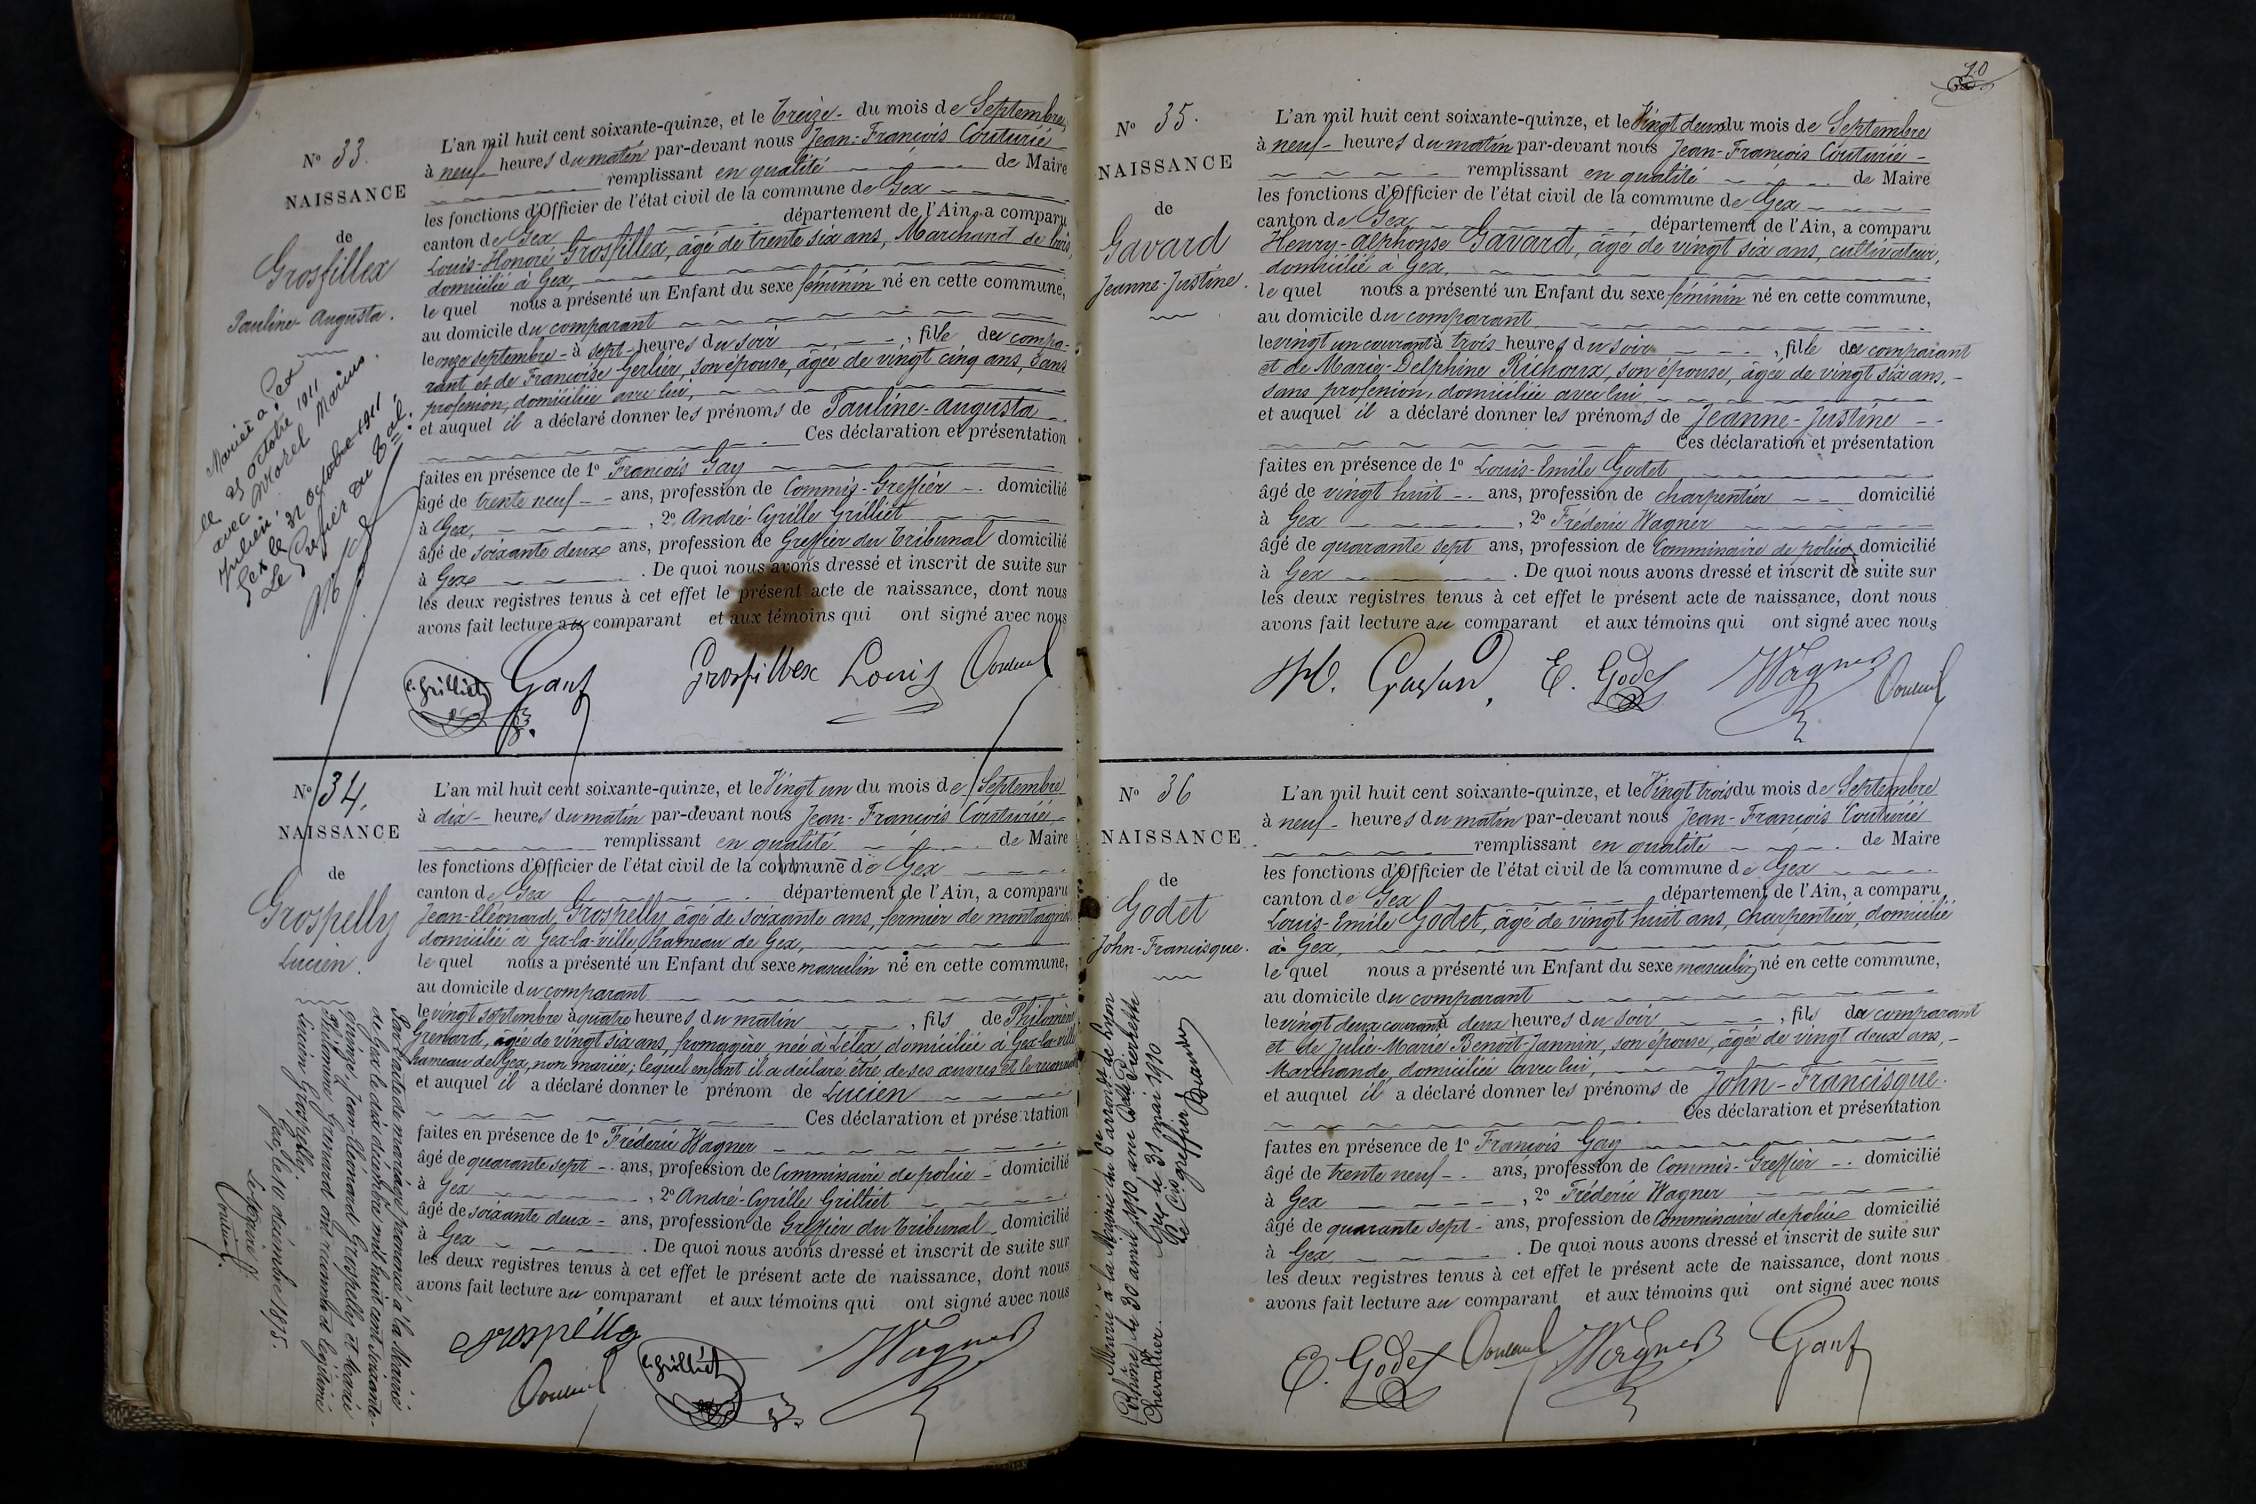 N° 33.
NAISSANCE
de
Grosfillex
Pauline-Augusta.
Mariée à Gex
le 21 octobre 1911
avec Morel Marius
Julien.
Gex le 31 octobre 1911
Le Greffier du Tal.
L'an mil huit cent soixante-quinze, et le Treize - du mois de Septembre,
à neuf - heures du matin par-devant nous Jean-François Couturié
remplissant en qualité de Maire
les fonctions d'Officier de l'état civil de la commune de Gex
canton de Gex département de l'Ain, a comparu
Louis-Honoré Grosfillex, âgé de trente six ans, Marchand de bois,
domicilié à Gex,
le quel nous a présenté un Enfant du sexe féminin né en cette commune,
au domicile du comparant
le onze septembre - à sept - heures du soir , fille du compa-
rant et de Françoise Gerlier, son épouse, âgée de vingt cinq ans, Sans
profession, domiciliée avec lui,
et auquel il a déclaré donner les prénoms de Pauline-Augusta
Ces déclaration et présentation
faites en présence de 1° François Gay
âgé de trente neuf - - ans, profession de Commis-Greffier - . domicilié
à Gex, , 2° André-Cyrille Grilliet
âgé de soixante deux ans, profession de Greffier du Tribunal domicilié
à Gex . De quoi nous avons dressé et inscrit de suite sur
les deux registres tenus à cet effet le présent acte de naissance, dont nous
avons fait lecture au comparant et aux témoins qui ont signé avec nous
C. Grilliet Gay Grosfillex Louis Couturié
N° 34.
NAISSANCE
de
Grospelly
Lucien.
Par l'acte de mariage prononcé à la Mairie
de Gex le dix décembre mil huit cent soixante-
quinze, Jean-Eléonard Grospelly et Marie
Philomène Grenard ont reconnu et légitimé
Lucien Grospelly.
Gex, le 10 décembre 1875.
Couturié
L'an mil huit cent soixante-quinze, et le Vingt un du mois de Septembre
à dix - heures du matin par-devant nous Jean-François Couturié -
remplissant en qualité de Maire
les fonctions d'Officier de l'état civil de la commune de Gex
canton de Gex département de l'Ain, a comparu
Jean-Eléonard Grospelly âgé de soixante ans, fermier de montagne
domicilié à Gex-la-ville hameau de Gex,
le quel nous a présenté un Enfant du sexe masculin né en cette commune,
au domicile du comparant
le vingt septembre à quatre heures du matin , fils de Philomène
Grenard, âgée de vingt six ans, fromagère née à Lélex domiciliée à Gex-la-ville
hameau de Gex, non mariée; lequel enfant il a déclaré être de ses œuvres et le reconnaît
et auquel il a déclaré donner le prénom de Lucien
Ces déclaration et présentation
faites en présence de 1° Fréderic Wagner
âgé de quarante sept - . ans, profession de Commissaire de police - domicilié
à Gex , 2° André-Cyrille Grilliet
âgé de soixante deux - ans, profession de Greffier du Tribunal - domicilié
à Gex . De quoi nous avons dressé et inscrit de suite sur
les deux registres tenus à cet effet le présent acte de naissance, dont nous
avons fait lecture au comparant et aux témoins qui ont signé avec nous
Grospelly
Couturié C. Grilliet Wagner
70
N° 35.
NAISSANCE
de
Gavard
Jeanne-Justine.
L'an mil huit cent soixante-quinze, et le Vingt deux du mois de Septembre
à neuf - heures du matin par-devant nous Jean-François Couturié -
remplissant en qualité de Maire
les fonctions d'Officier de l'état civil de la commune de Gex
canton de Gex département de l'Ain, a comparu
Henry-Alphonse Gavard, âgé de vingt six ans, cultivateur,
domicilié à Gex,
le quel nous a présenté un Enfant du sexe féminin né en cette commune,
au domicile du comparant
le vingt un courant à trois heures du soir , fille du comparant
et de Marie-Delphine Richoux, son épouse, âgée de vingt six ans, -
sans profession, domiciliée avec lui
et auquel il a déclaré donner les prénoms de Jeanne-Justine - -
Ces déclaration et présentation
faites en présence de 1° Louis-Emile Godet
âgé de vingt huit - . ans, profession de charpentier - - domicilié
à Gex , 2° Fréderic Wagner
âgé de quarante sept ans, profession de Commissaire de police domicilié
à Gex . De quoi nous avons dressé et inscrit de suite sur
les deux registres tenus à cet effet le présent acte de naissance, dont nous
avons fait lecture au comparant et aux témoins qui ont signé avec nous
H. Gavard, E. Godet Wagner Couturié
N° 36
NAISSANCE
de
Godet
John-Francisque.
Marié à la Mairie du 6me arrondt de Lyon
Rhône le 30 avril 1910, avec
Chevallier.
Gex, le 31 mai 1910
Le Cis greffier
L'an mil huit cent soixante-quinze, et le Vingt trois du mois de Septembre
à neuf - heures du matin par-devant nous Jean-François Couturié
remplissant en qualité de Maire
les fonctions d'Officier de l'état civil de la commune de Gex
canton de Gex département de l'Ain, a comparu
Louis-Emile Godet, âgé de vingt huit ans, charpentier, domicilié
à Gex,
le quel nous a présenté un Enfant du sexe masculin né en cette commune,
au domicile du comparant
le vingt deux courant à deux heures du soir , fils du comparant
et de Julie-Marie Benoit-Jannin, son épouse, âgée de vingt deux ans, -
Marchande, domiciliée avec lui,
et auquel il a déclaré donner les prénoms de John-Francisque.
Ces déclaration et présentation
faites en présence de 1° François Gay
âgé de trente neuf - . ans, profession de Commis-Greffier - . domicilié
à Gex , 2° Fréderic Wagner
âgé de quarante sept - ans, profession de Commissaire de police domicilié
à Gex . De quoi nous avons dressé et inscrit de suite sur
les deux registres tenus à cet effet le présent acte de naissance, dont nous
avons fait lecture au comparant et aux témoins qui ont signé avec nous
E. Godet Couturié Wagner Gay